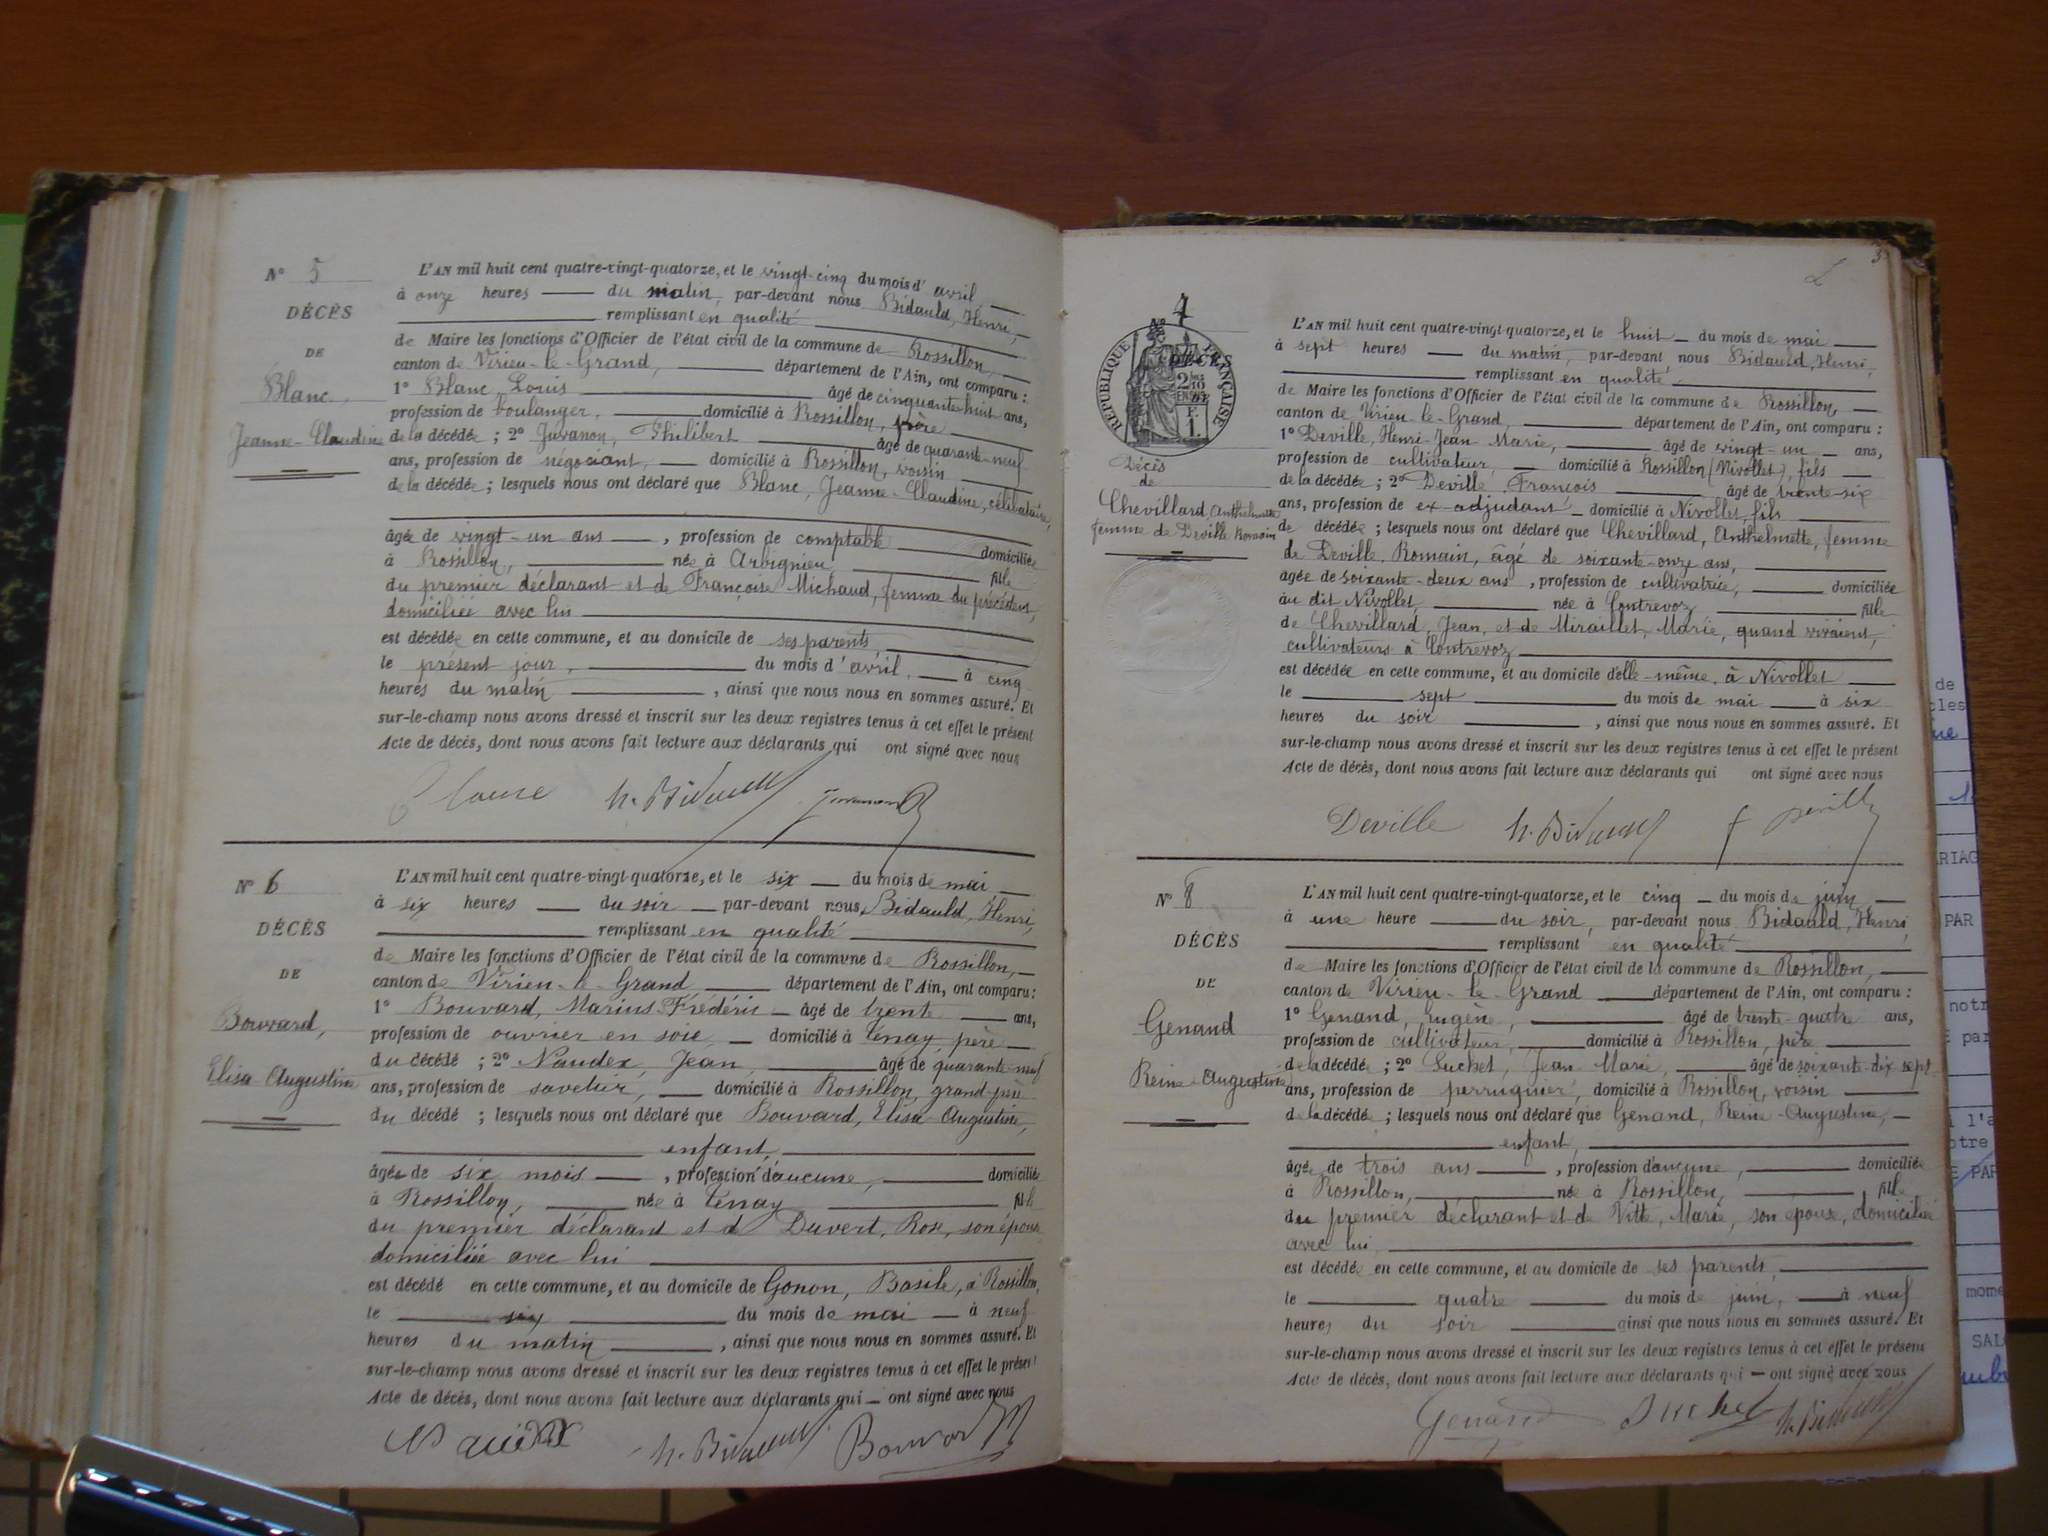 N° 5
DÉCÈS
DE
Blanc,
Jeanne-Claudine
L'AN mil huit cent quatre-vingt-quatorze, et le vingt-cinq du mois d'avril
à onze heures du matin, par-devant nous Bidauld, Henri,
remplissant en qualité
de Maire les fonctions d'Officier de l'état civil de la commune de Rossillon,
canton de Virieu-le-Grand, département de l'Ain, ont comparu :
1° Blanc, Louis âgé de cinquante-huit ans,
profession de boulanger, domicilié à Rossillon, père
de la décédée ; 2° Juvanon, Philibert âgé de quarante-neuf
ans, profession de négociant, domicilié à Rossillon, voisin
de la décédée ; lesquels nous ont déclaré que Blanc, Jeanne-Claudine, célibataire,
âgée de vingt-un ans, profession de comptable domiciliée
à Rossillon, née à Arbignieu, fille
du premier déclarant et de Françoise Michaud, femme du précédent,
domiciliée avec lui
est décédée en cette commune, et au domicile de ses parents,
le présent jour, du mois d'avril, à cinq
heures du matin, ainsi que nous nous en sommes assuré. Et
sur-le-champ nous avons dressé et inscrit sur les deux registres tenus à cet effet le présent
Acte de décès, dont nous avons fait lecture aux déclarants qui ont signé avec nous
h. Bidauld
N° 6
DÉCÈS
DE
Bouvard,
Elisa-Augustine
L'AN mil huit cent quatre-vingt-quatorze, et le six du mois de mai
à six heures du soir par-devant nous, Bidauld, Henri,
remplissant en qualité
de Maire les fonctions d'Officier de l'état civil de la commune de Rossillon,
canton de Virieu-le-Grand département de l'Ain, ont comparu :
1° Bouvard, Marius Frédéric âgé de trente ans,
profession de ouvrier en soie, domicilié à Tenay, père
du décédé ; 2° Naudex, Jean, âgé de quarante-neuf
ans, profession de savetier, domicilié à Rossillon, grand-père
du décédé ; lesquels nous ont déclaré que Bouvard, Elisa-Augustine,
enfant,
âgée de six mois, profession d'aucune, domiciliée
à Rossillon, née à Tenay fille
du premier déclarant et de Duvert, Rose, son épouse
domiciliée avec lui
est décédé en cette commune, et au domicile de Gonon, Basile, à Rossillon,
le six du mois de mai à neuf
heures du matin, ainsi que nous nous en sommes assuré. Et
sur-le-champ nous avons dressé et inscrit sur les deux registres tenus à cet effet le présent
Acte de décès, dont nous avons fait lecture aux déclarants qui ont signé avec nous
h. Bidauld Bouvard
3
N° 7
RÉPUBLIQUE FRANÇAISE
DÉCÈS
DE
2 10
EN SUS
1 F.
Décès
de
Chevillard Anthelmette
femme de Deville Romain
L'AN mil huit cent quatre-vingt-quatorze, et le huit du mois de mai
à sept heures du matin, par-devant nous Bidauld, Henri,
remplissant en qualité
de Maire les fonctions d'Officier de l'état civil de la commune de Rossillon,
canton de Virieu-le-Grand, département de l'Ain, ont comparu :
1° Deville, Henri-Jean-Marie, âgé de vingt-un ans,
profession de cultivateur, domicilié à Rossillon (Nivollet), fils
de la décédée ; 2° Deville, François âgé de trente-six
ans, profession de ex-adjudant domicilié à Nivollet, fils
de décédée ; lesquels nous ont déclaré que Chevillard, Anthelmette, femme
de Deville Romain, âgé de soixante-onze ans,
âgée de soixante-deux ans, profession de cultivatrice, domiciliée
au dit Nivollet, née à Contrevoz fille
de Chevillard, Jean, et de Miraillet, Marie, quand vivaient,
cultivateurs à Contrevoz
est décédée en cette commune, et au domicile d'elle-même, à Nivollet
le sept du mois de mai à six
heures du soir, ainsi que nous nous en sommes assuré. Et
sur-le-champ nous avons dressé et inscrit sur les deux registres tenus à cet effet le présent
Acte de décès, dont nous avons fait lecture aux déclarants qui ont signé avec nous
Deville h. Bidauld f Deville
N° 8
DÉCÈS
DE
Genand
Reine-Augustine
L'AN mil huit cent quatre-vingt-quatorze, et le cinq du mois de juin,
à une heure du soir, par-devant nous Bidauld, Henri,
remplissant en qualité
de Maire les fonctions d'Officier de l'état civil de la commune de Rossillon,
canton de Virieu-le-Grand département de l'Ain, ont comparu :
1° Genand, Eugène, âgé de trente-quatre ans,
profession de cultivateur, domicilié à Rossillon, père
de la décédée ; 2° Suchet, Jean-Marie, âgé de soixante-dix-sept
ans, profession de perruquier, domicilié à Rossillon, voisin
de la décédée ; lesquels nous ont déclaré que Genand, Reine-Augustine,
enfant,
âgée de trois ans, profession d'aucune, domiciliée
à Rossillon, née à Rossillon, fille
du premier déclarant et de Vitte, Marie, son épouse, domiciliée
avec lui
est décédée en cette commune, et au domicile de ses parents,
le quatre du mois de juin, à neuf
heures du soir ainsi que nous nous en sommes assuré. Et
sur-le-champ nous avons dressé et inscrit sur les deux registres tenus à cet effet le présent
Acte de décès, dont nous avons fait lecture aux déclarants qui ont signé avec nous
Genand Suchet h. Bidauld